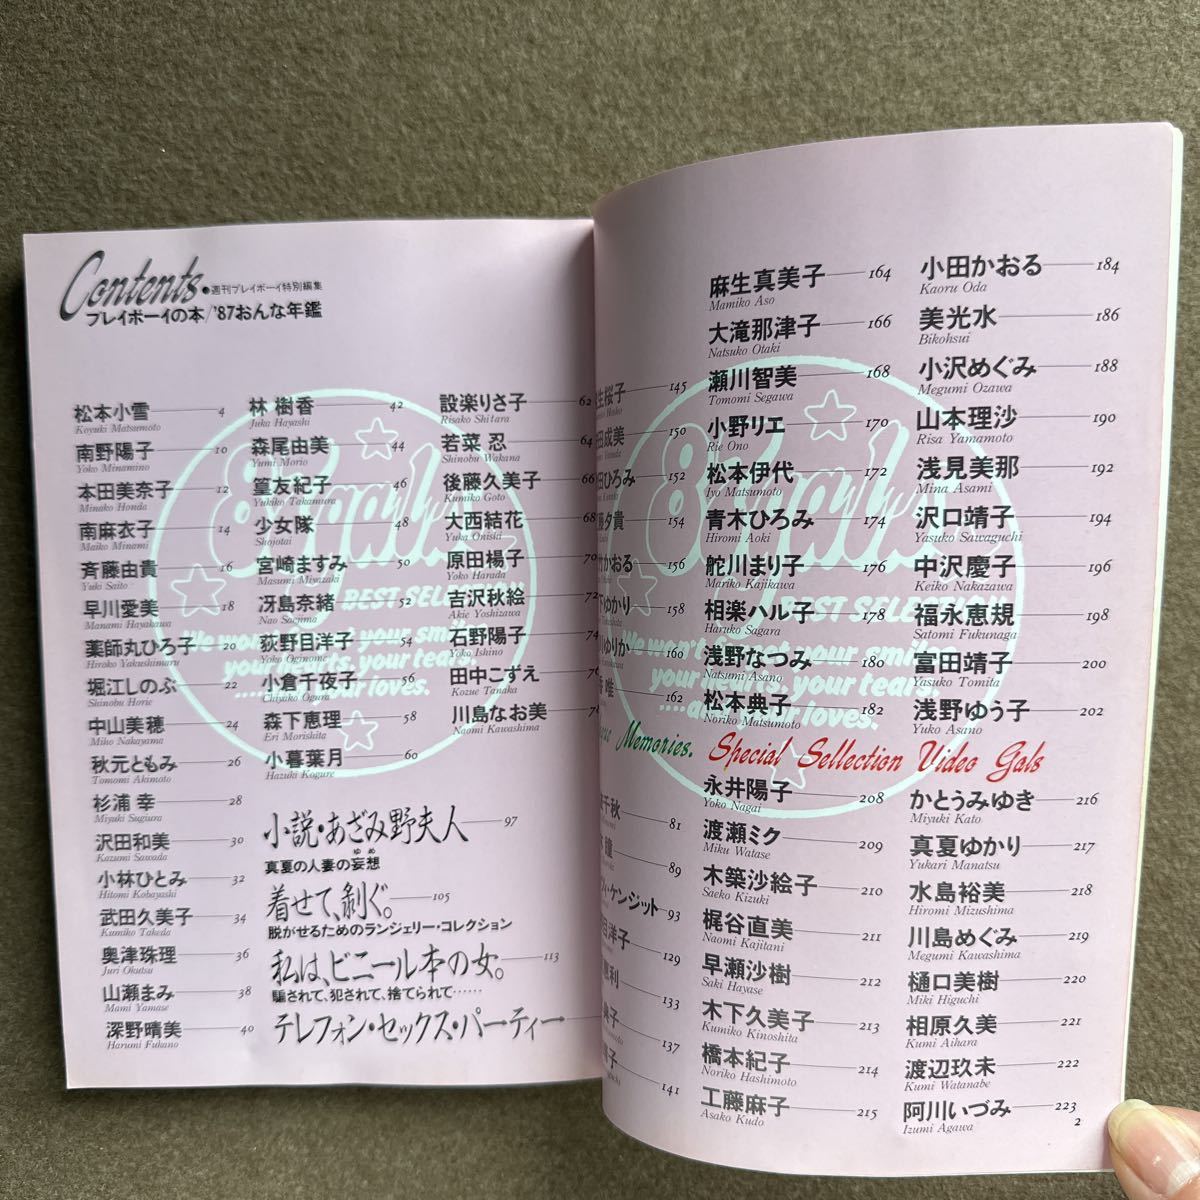 Contents
●週刊プレイボーイ特別編集
プレイボーイの本/'87おんな年鑑
松本小雪 4
Koyuki Matsumoto
南野陽子 10
Yoko Minamino
本田美奈子 12
Minako Honda
南麻衣子 14
Maiko Minami
斉藤由貴 16
Yuki Saito
早川愛美 18
Manami Hayakawa
薬師丸ひろ子 20
Hiroko Yakushimaru
堀江しのぶ 22
Shinobu Horie
中山美穂 24
Miho Nakayama
秋元ともみ 26
Tomomi Akimoto
杉浦 幸 28
Miyuki Sugiura
沢田和美 30
Kazumi Sawada
小林ひとみ 32
Hitomi Kobayashi
武田久美子 34
Kumiko Takeda
奥津珠理 36
Juri Okutsu
山瀬まみ 38
Mami Yamase
深野晴美 40
Harumi Fukano
林 樹香 42
Juka Hayashi
森尾由美 44
Yumi Morio
篁友紀子 46
Yukiko Takamura
少女隊 48
Shojotai
宮崎ますみ 50
Masumi Miyazaki
冴島奈緒 52
Nao Saejima
荻野目洋子 54
Yoko Oginome
小倉千夜子 56
Chiyako Ogura
森下恵理 58
Eri Morishita
小暮葉月 60
Hazuki Kogure
設楽りさ子 62
Risako Shitara
若菜 忍 64
Shinobu Wakana
後藤久美子 66
Kumiko Goto
大西結花 68
Yuka Onishi
原田楊子 70
Yoko Harada
吉沢秋絵 72
Akie Yoshizawa
石野陽子 74
Yoko Ishino
田中こずえ 76
Kozue Tanaka
川島なお美 78
Naomi Kawashima
小説・あざみ野夫人 97
真夏の人妻の妄想
ゆめ
着せて、剝ぐ。 105
脱がせるためのランジェリー・コレクション
私は、ビニール本の女。 113
騙されて、犯されて、捨てられて……
テレフォン・セックス・パーティー
BEST SELECTION
We won't forget your smiles,
your hearts, your tears,
桜子 145
成美 150
ひろみ 152
夕貴 154
かおる 156
ゆかり 158
ゆりか 160
唯 162
Memories.
千秋 81
瞳 89
ケンジット 93
洋子 129
133
137
141
麻生真美子 164
Mamiko Aso
大滝那津子 166
Natsuko Otaki
瀬川智美 168
Tomomi Segawa
小野リエ 170
Rie Ono
松本伊代 172
Iyo Matsumoto
青木ひろみ 174
Hiromi Aoki
舵川まり子 176
Mariko Kajikawa
相楽ハル子 178
Haruko Sagara
浅野なつみ 180
Natsumi Asano
松本典子 182
Noriko Matsumoto
小田かおる 184
Kaoru Oda
美光水 186
Bikohsui
小沢めぐみ 188
Megumi Ozawa
山本理沙 190
Risa Yamamoto
浅見美那 192
Mina Asami
沢口靖子 194
Yasuko Sawaguchi
中沢慶子 196
Keiko Nakazawa
福永恵規 198
Satomi Fukunaga
富田靖子 200
Yasuko Tomita
浅野ゆう子 202
Yuko Asano
Special Sellection Video Gals
永井陽子 208
Yoko Nagai
渡瀬ミク 209
Miku Watase
木築沙絵子 210
Saeko Kizuki
梶谷直美 211
Naomi Kajitani
早瀬沙樹 212
Saki Hayase
木下久美子 213
Kumiko Kinoshita
橋本紀子 214
Noriko Hashimoto
工藤麻子 215
Asako Kudo
かとうみゆき 216
Miyuki Kato
真夏ゆかり 217
Yukari Manatsu
水島裕美 218
Hiromi Mizushima
川島めぐみ 219
Megumi Kawashima
樋口美樹 220
Miki Higuchi
相原久美 221
Kumi Aihara
渡辺玖未 222
Kumi Watanabe
阿川いづみ 223
Izumi Agawa
2